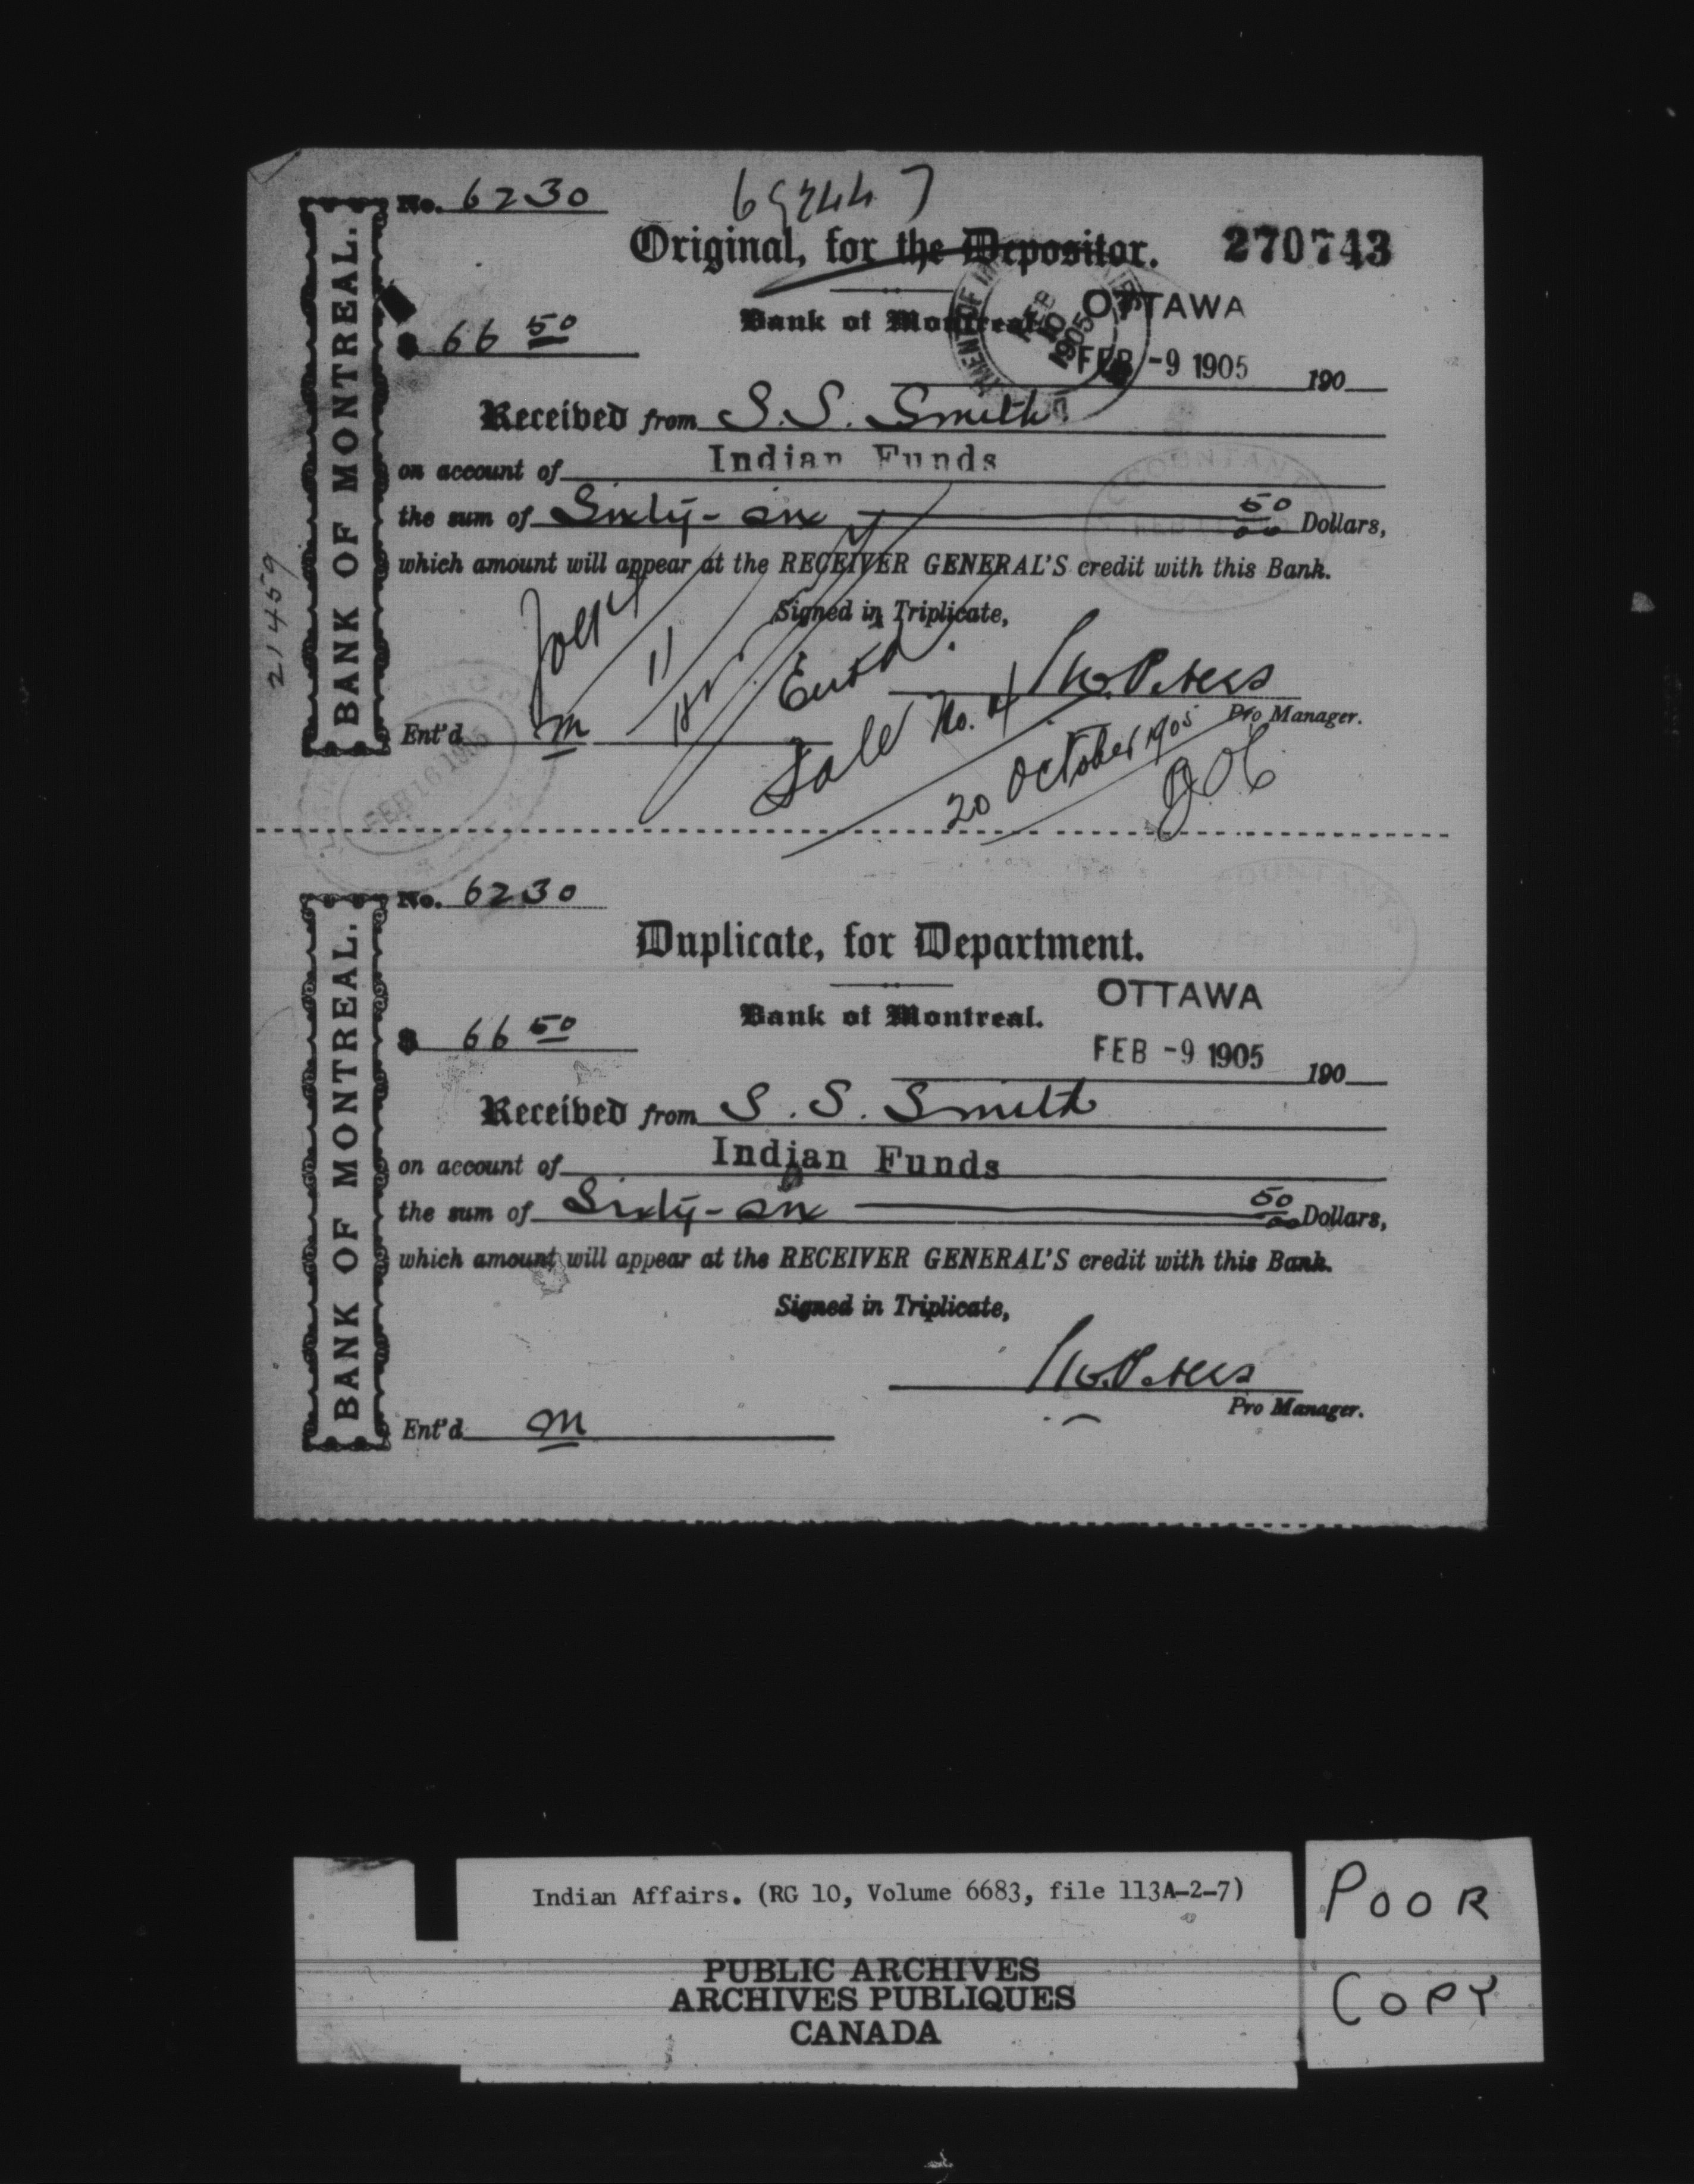 No. 6230
Original, for the Depositor. 270743
BANK OF MONTREAL.
Bank of Montreal. OTTAWA
$ 66 50
FEB -9 1905 190
FEB 10 1905
Received from S. S. Smith
on account of Indian Funds
the sum of Sixty-six 50/00 Dollars,
which amount will appear at the RECEIVER GENERAL'S credit with this Bank.
Signed in Triplicate,
21459
Sale No. 4
20 October 1905
Pro Manager.
Ent'd m
FEB 16 1905
No. 6230
Duplicate, for Department.
BANK OF MONTREAL.
OTTAWA
Bank of Montreal.
$ 66 50
FEB -9 1905 190
Received from S. S. Smith
on account of Indian Funds
the sum of Sixty-six 50/00 Dollars,
which amount will appear at the RECEIVER GENERAL'S credit with this Bank.
Signed in Triplicate,
Pro Manager.
Ent'd m
Indian Affairs. (RG 10, Volume 6683, file 113A-2-7)
PUBLIC ARCHIVES
ARCHIVES PUBLIQUES
CANADA
POOR
COPY